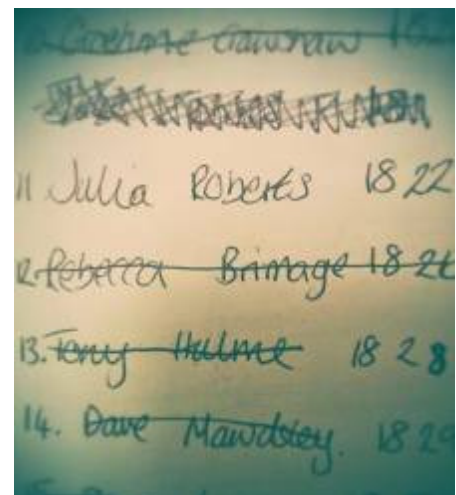 Graeme Crawshaw 18
11 Julia Roberts 18 22
12. Rebecca Brimage 18 26
13. Tony Hulme 18 28
14. Dave Mawdsley. 18 29